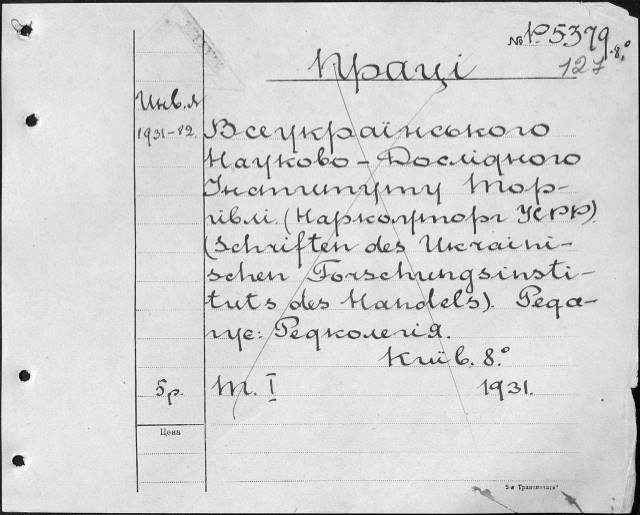 № Р5379
127 8.°
Праці
Инв. Я
1931-82.
Всеукраїнського
Науково-Дослідного
Інституту Тор-
гівлі. (Наркомторг УСРР).
(Schriften des Ukraini-
schen Forschungsinsti-
tuts des Handels). Реда-
гує: Редколегія.
Київ. 8.°
5р. Т. I 1931.
Цена